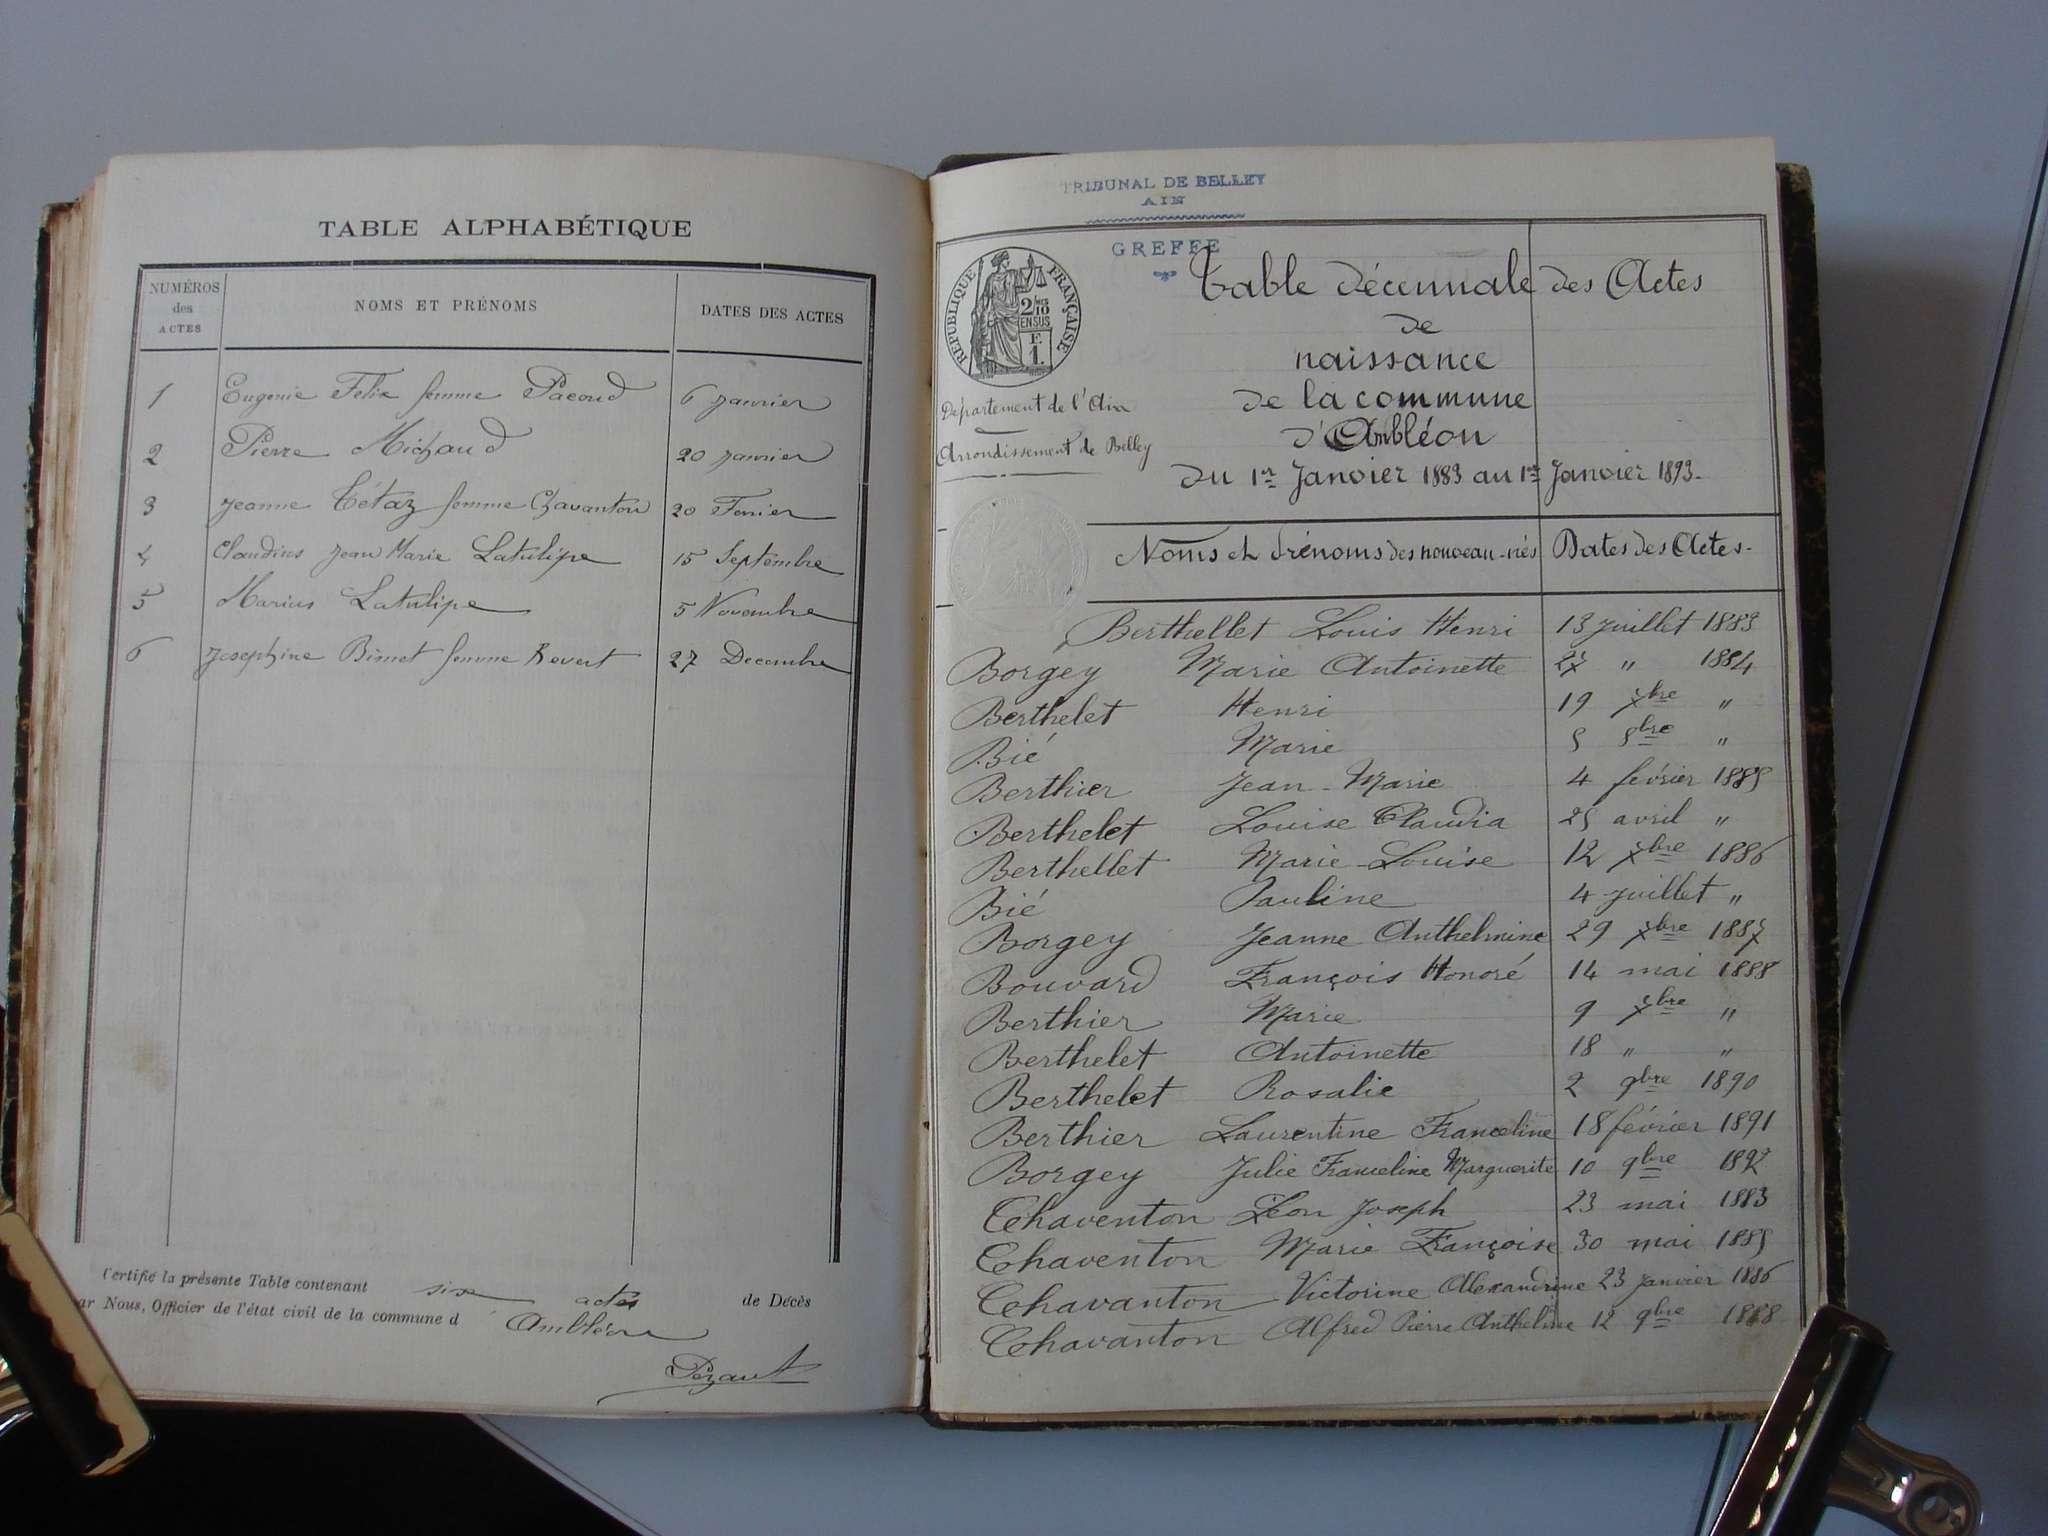 TABLE ALPHABÉTIQUE
NUMÉROS des ACTES NOMS ET PRÉNOMS DATES DES ACTES
1 Eugenie Felix femme Pacoud 6 Janvier
2 Pierre Michaud 20 Janvier
3 Jeanne Tétaz femme Chavanton 20 Fevrier
4 Claudius Jean Marie Latulipe 15 Septembre
5 Marius Latulipe 5 Novembre
6 Josephine Bimet femme Revert 27 Decembre
Certifié la présente Table contenant six actes de Décès
ar Nous, Officier de l'état civil de la commune d Ambléon
Pezant
TRIBUNAL DE BELLEY
AIN
GREFFE
RÉPUBLIQUE FRANÇAISE
2/10 EN SUS
F. 1.
Département de l'Ain
Arrondissement de Belley
Table décennale des Actes
de
naissance
de la commune
d'Ambléon
du 1er Janvier 1883 au 1er Janvier 1893.
Noms et Prénoms des nouveau-nés Dates des Actes.
Berthellet Louis Henri 13 juillet 1883
Borgey Marie Antoinette 27 " 1884
Berthelet Henri 19 xbre "
Bié Marie 5 8bre "
Berthier Jean-Marie 4 février 1885
Berthelet Louise Claudia 25 avril "
Berthellet Marie-Louise 12 xbre 1886
Bié Pauline 4 juillet "
Borgey Jeanne Anthelmine 29 xbre 1887
Bouvard François Honoré 14 mai 1888
Berthier Marie 9 xbre "
Berthelet Antoinette 18 " "
Berthelet Rosalie 2 9bre 1890
Berthier Laurentine Franceline 18 février 1891
Borgey Julie Franceline Marguerite 10 9bre 1892
Chaventon Léon Joseph 23 mai 1883
Chaventon Marie Françoise 30 mai 1885
Chavanton Victorine Alexandrine 23 janvier 1886
Chavanton Alfred Pierre Anthelme 12 9bre 1888